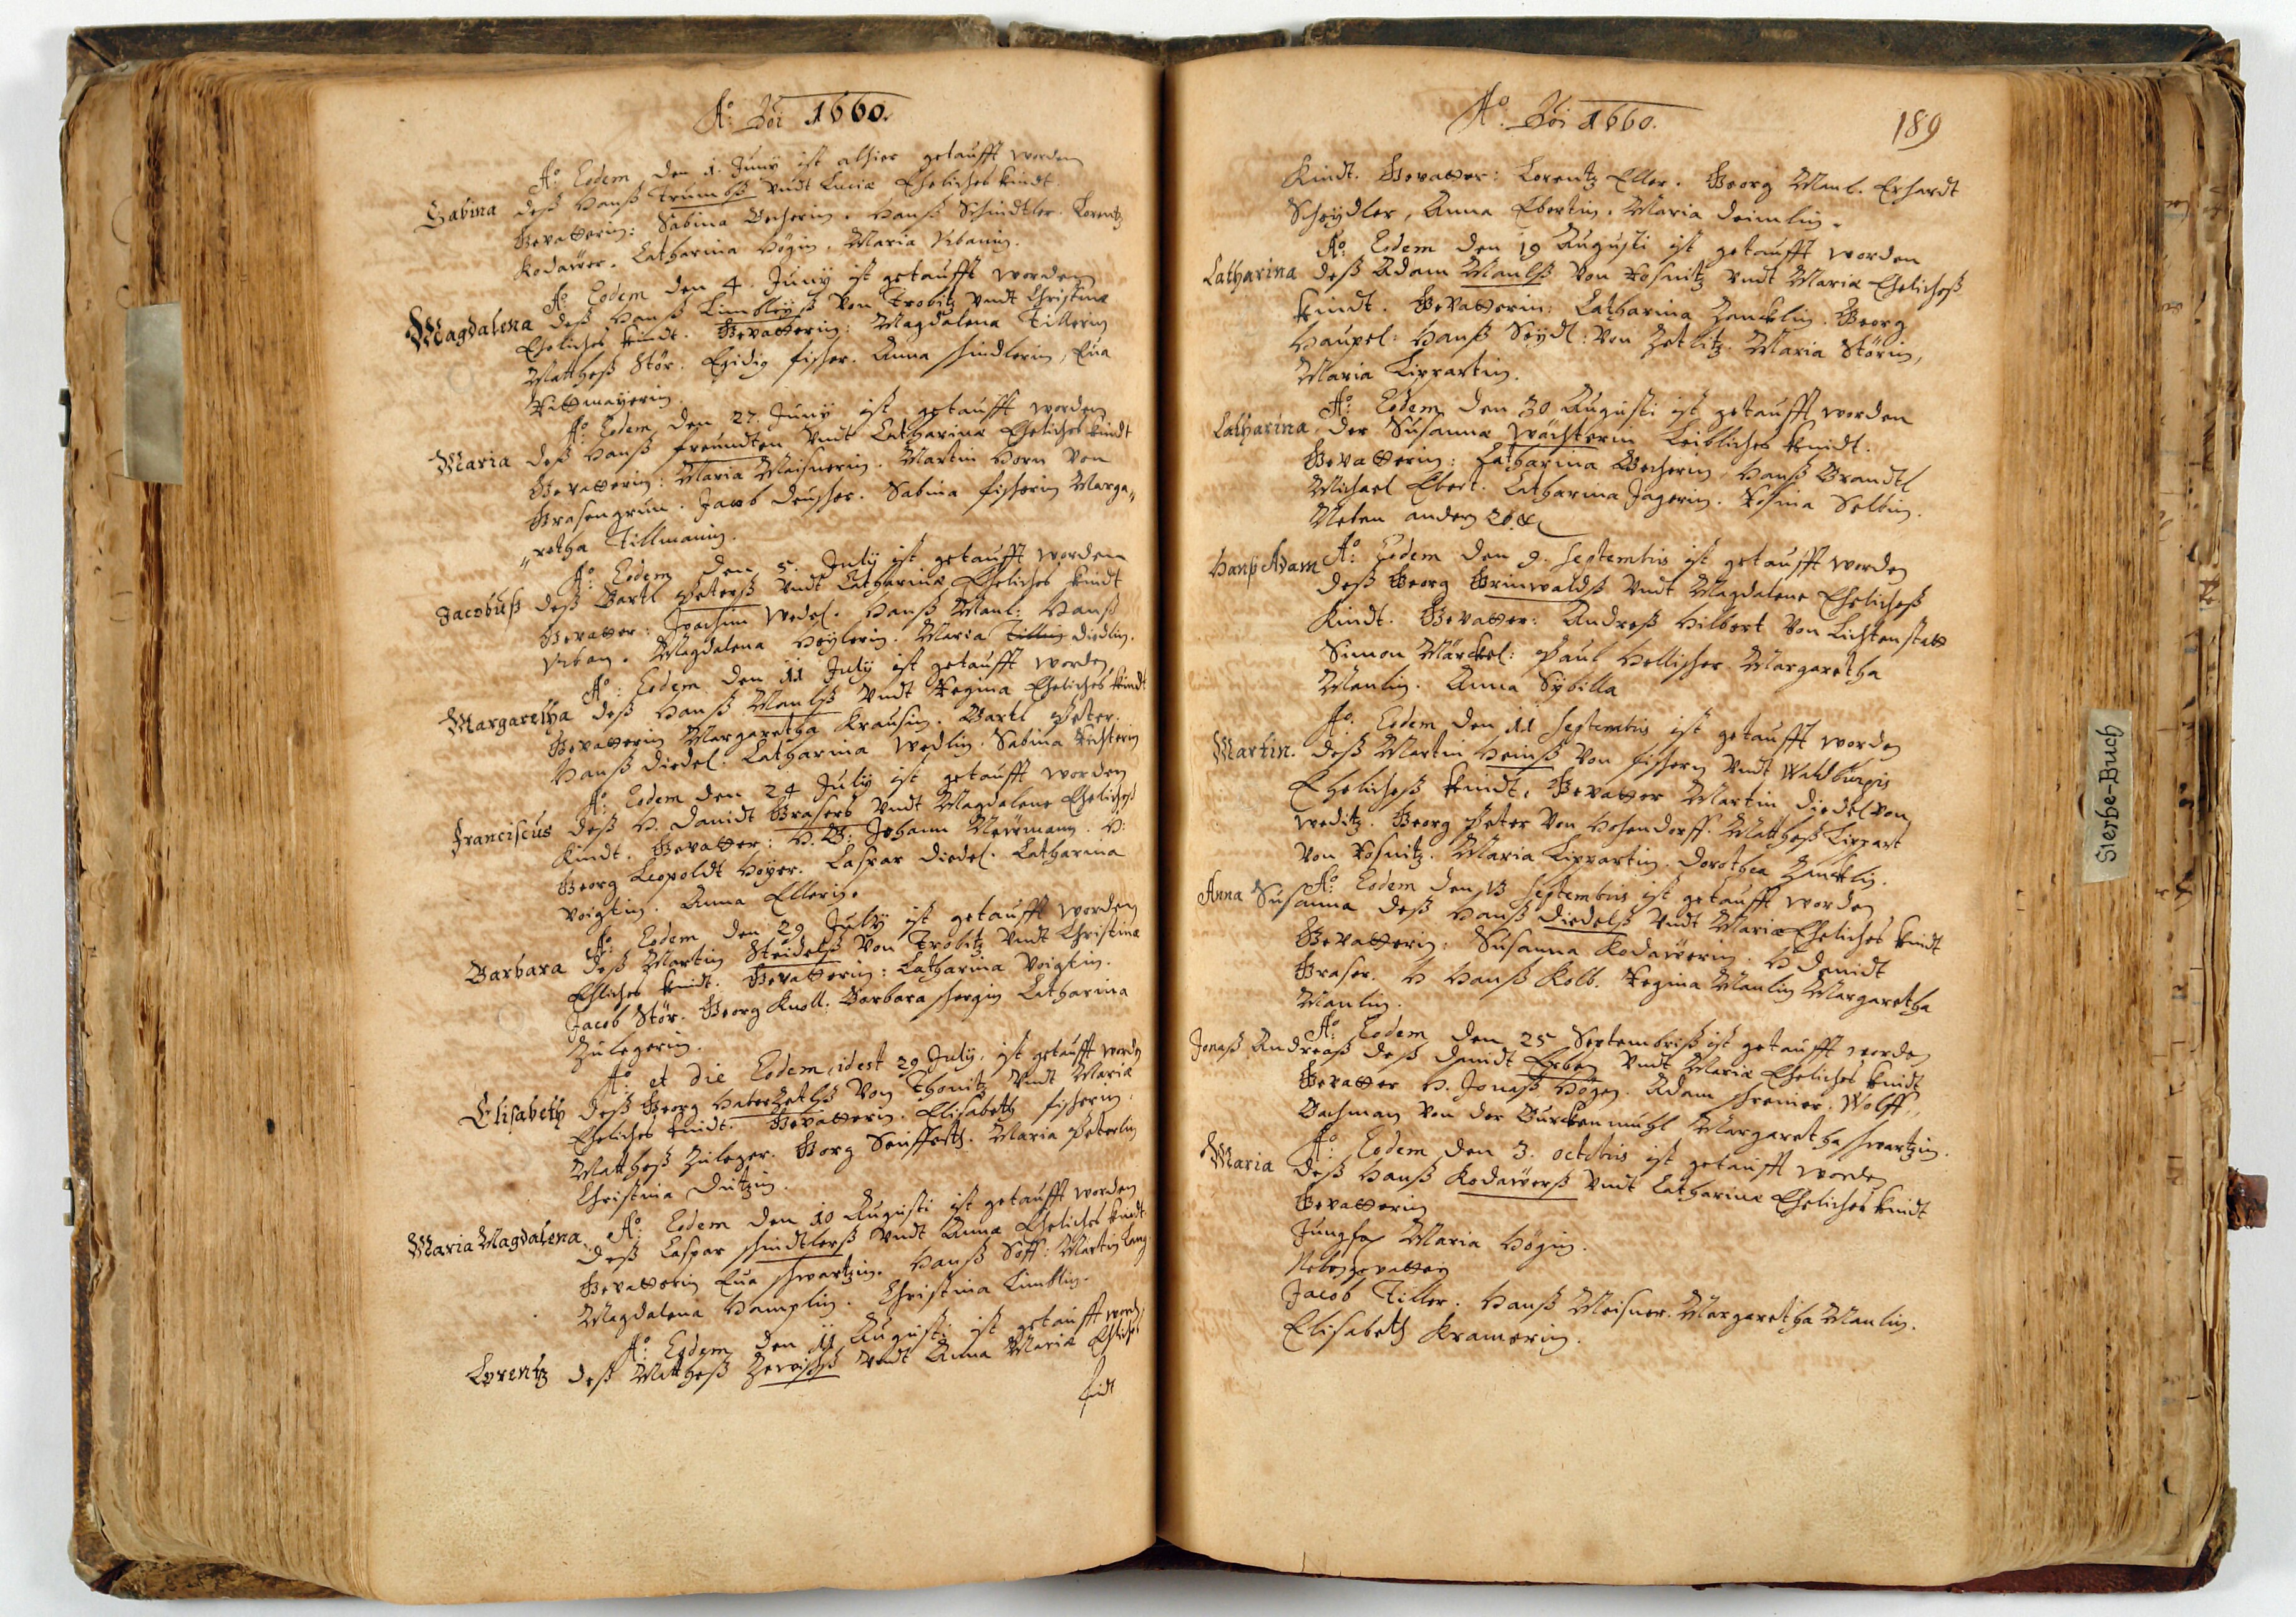 Aº: Dõi 1660.
Aº: Eodem den 1. Juny ist alhier getaufft worden
Sabina deß Hanß Trumbß Vndt Luciæ Eheliches Kindt.
Gevatterin: Sabina Becherin. Hanß Schindtler. Lorentz
Kodawer. Catharina Högin. Maria Vrbanin.
Aº: Eodem den 4. Juny ist getaufft worden
Magdalena deß Hanß Limbleyß Von Trobitz Vndt Christinæ
Eheliches Kindt. Gevatterin: Magdalena Tillerin
Mattheß Stör. Egidig fischer. Anna schindlerin, Eua
Rittmayerin.
Aº: Eodem den 27. Juny ist getaufft worden
Maria deß Hanß freundten Vndt Catharinæ Eheliches Kindt
Gevatterin: Maria Meisnerin. Martin Horn Von
Grasengrün. Jacob deuscher. Sabina fischerin Marga„
„retha Tillmanin.
Aº: Eodem den 5. July ist getaufft worden
Jacobuß deß Bartl Peterß Vndt Catharinæ Eheliches Kindt
Gevatter: Joachim Wedel. Hanß Manl: Hanß
Vrban. Magdalena Heylerin. Maria Tillin diedlin.
Aº: Eodem den 11 July ist getaufft worden
Margaretha deß Hanß Manlß Vndt Regina Eheliches Kindt
Gevatterin Margaretha Krausin. Bartl Peter.
Hanß diedel: Catharina Wedlin. Sabina Richterin
Aº: Eodem den 24 July ist getaufft worden
Franciscus deß H. Dauidt Grasers Vndt Magdalene Ehelicheß
Kindt. Gevatter: H. G. Johann Neürmann. H:
Georg Leopoldt Höyer. Caspar diedel. Catharina
Voigtin. Anna Ellerin.
Aº: Eodem den 29 July ist getaufft worden
Barbara deß Martin Steidelß Von Trobitz Vndt Christinæ
Ehliches Kindt. Gevatterin: Catharina Voigtin.
Jacob Stör. Georg Knoll: Barbara schergin Catharina
Zulegerin.
Aº: et die Eodem, idest 29 July, ist getaufft worden
Elisabeth deß Georg Haberzethß Von Thonitz Vndt Mariæ
Eheliches Kindt. Gevatterin. Elisabeth fischerin:
Mattheß Zuleger. Georg Seufferth. Maria Peterlin
Christina Dützin.
Aº: Eodem den 10 Augusti ist getaufft worden
Maria Magdalena deß Caspar schindtlerß Vndt Annæ Eheliches Kindt.
Gevatterin Eua schwartzin. Hanß Döff: Martin Lang
Magdalena Hamplin. Christina Limblin.
Aº: Eodem den 11 Augusti ist getaufft word„
Lorentz deß Mattheß Zerwißß Vndt Anna Mariæ Ehliches
Kindt
Aº: Dõi 1660.
189
Kindt. Gevatter: Lorentz Eller. Georg Manl. Erhardt
Scheydler, Anna Ebertin. Maria deimlin.
Aº: Eodem den 19 Augusti ist getaufft worden
Catharina deß Adam Manlß Von Rosnitz Vndt Mariæ Ehelicheß
Kindt. Gevatterin: Catharina Zancklin. Georg
Haupel: Hanß Seydl: Von Zetlitz. Maria Störin,
Maria Lippartin.
Aº: Eodem den 30 Augusti ist getaufft worden
Catharina der Susannæ Wächterin Leibliches Kindt.
Gevatterin: Catharina Becherin Hanß Brandtl
Michael Ebert. Catharina Jägerin. Rosina Seltin.
Neben andern
Aº: Eodem den 9. Septembris ist getaufft worden
Hanß Adam deß Georg Grünwaldß Vndt Magdalene Ehelicheß
Kindt. Gevatter: Andreß Hilbert Von Lichtenstatt
Simon Märckel: Paul Hellischer Margaretha
Manlin. Anna Sybilla
Aº: Eodem den 11 Septembris ist getaufft worden
Martin. deß Martin Heinß Von fischern Vndt Waldburgis
Ehelicheß Kindt. Gevatter Martin diedel Von
Weditz. Georg Peter Von Hohendorff. Mattheß Lippart
Von Rosnitz. Maria Lippartin. Dorothea Zancklin.
Aº: Eodem den 13 Septembris ist getaufft worden
Anna Susanna deß Hanß diedelß Vndt Mariæ Eheliches Kindt
Gevatterin: Susanna Kodawerin. H Dauidt
Graser. H Hanß Kolb. Regina Manlin Margaretha
Manlin.
Aº: Eodem den 25 Septembriß ist getaufft worden
Jonaß Andreaß deß Dauidt Erben Vndt Mariæ Eheliches Kindt
Gevatter H. Jonaß Högen. Adam schreiner. Wolff„
Bachman Von der Burckenmühl Margaretha schwartzin.
Aº: Eodem den 3. octobris ist getaufft worden
Maria deß Hanß Kodawerß Vndt Catharinæ Eheliches Kindt
Gevatterin
Jungfr Maria Högin.
Nebengevattern
Jacob Tiller. Hanß Meisner. Margaretha Manlin.
Elisabeth Kramerin.
Sterbe-Buch